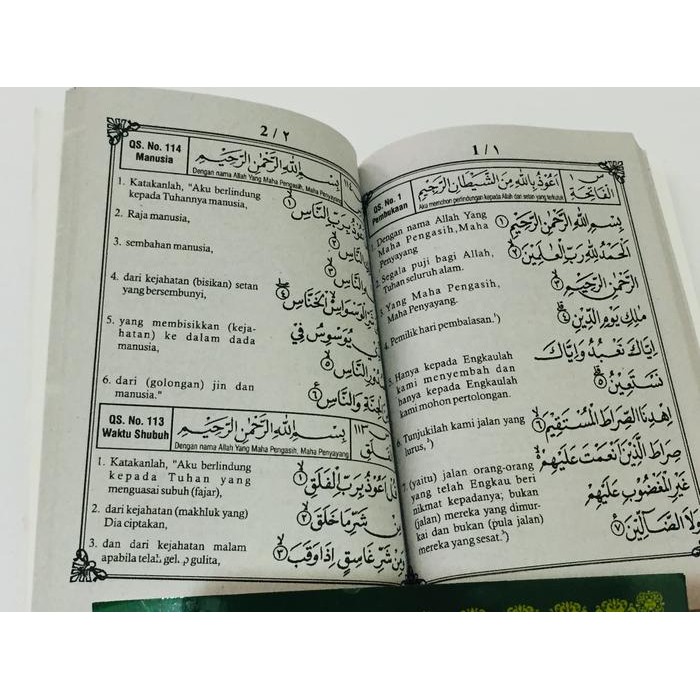 1 / ١
QS. No. 1
Pembukaan
أَعُوْذُ بِاللّٰهِ مِنَ الشَّيْطَانِ الرَّجِيْمِ
Aku memohon perlindungan kepada Allah dari setan yang terkutuk
س ١
الفَاتِحَة
1. Dengan nama Allah Yang
Maha Pengasih, Maha
Penyayang
2. Segala puji bagi Allah,
Tuhan seluruh alam.
3. Yang Maha Pengasih,
Maha Penyayang.
4. Pemilik hari pembalasan.¹)
5. Hanya kepada Engkaulah
kami menyembah dan
hanya kepada Engkaulah
kami mohon pertolongan.
6. Tunjukilah kami jalan yang
lurus,²)
7. (yaitu) jalan orang-orang
yang telah Engkau beri
nikmat kepadanya; bukan
(jalan) mereka yang dimur-
kai dan bukan (pula jalan)
mereka yang sesat.³)
بِسْمِ اللّٰهِ الرَّحْمٰنِ الرَّحِيْمِ ١
اَلْحَمْدُ لِلّٰهِ رَبِّ الْعٰلَمِيْنَ ٢
الرَّحْمٰنِ الرَّحِيْمِ ٣
مٰلِكِ يَوْمِ الدِّيْنِ ٤
اِيَّاكَ نَعْبُدُ وَاِيَّاكَ
نَسْتَعِيْنُ ٥
اِهْدِنَا الصِّرَاطَ الْمُسْتَقِيْمَ ٦
صِرَاطَ الَّذِيْنَ اَنْعَمْتَ عَلَيْهِمْ
غَيْرِ الْمَغْضُوْبِ عَلَيْهِمْ
وَلَا الضَّاۤلِّيْنَ ٧
2 / ٢
QS. No. 114
Manusia
بِسْمِ اللّٰهِ الرَّحْمٰنِ الرَّحِيْمِ
Dengan nama Allah Yang Maha Pengasih, Maha Penyayang
١١٤
1. Katakanlah, "Aku berlindung
kepada Tuhannya manusia,
2. Raja manusia,
3. sembahan manusia,
4. dari kejahatan (bisikan) setan
yang bersembunyi,
5. yang membisikkan (keja-
hatan) ke dalam dada
manusia,
6. dari (golongan) jin dan
manusia."
اَعُوْذُ بِرَبِّ النَّاسِ ١
النَّاسِ ٢
النَّاسِ ٣
شَرِّ الْوَسْوَاسِ الْخَنَّاسِ ٤
يُوَسْوِسُ فِيْ
صُدُوْرِ النَّاسِ ٥
الْجِنَّةِ وَالنَّاسِ ٦
QS. No. 113
Waktu Shubuh
بِسْمِ اللّٰهِ الرَّحْمٰنِ الرَّحِيْمِ
Dengan nama Allah Yang Maha Pengasih, Maha Penyayang
١١٣
الفَلَق
1. Katakanlah, "Aku berlindung
kepada Tuhan yang
menguasai subuh (fajar),
2. dari kejahatan (makhluk yang)
Dia ciptakan,
3. dan dari kejahatan malam
apabila telah gelap gulita,
قُلْ اَعُوْذُ بِرَبِّ الْفَلَقِ ١
مِنْ شَرِّ مَا خَلَقَ ٢
وَمِنْ شَرِّ غَاسِقٍ اِذَا وَقَبَ ٣